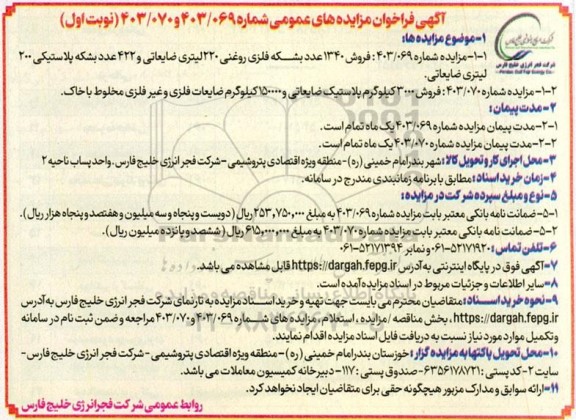 آگهی فراخوان مزایده های عمومی شماره ۴۰۳/۰۶۹ و ۴۰۳/۰۷۰ (نوبت اول)
شرکت فجر انرژی خلیج فارس
Persian Gulf Fajr Energy Co.
۱-موضوع مزایده ها:
۱-۱-مزایده شماره ۴۰۳/۰۶۹ : فروش ۱۳۴۰ عدد بشکه فلزی روغنی ۲۲۰ لیتری ضایعاتی و ۴۲۲ عدد بشکه پلاستیکی ۲۰۰
لیتری ضایعاتی.
۱-۲- مزایده شماره ۴۰۳/۰۷۰ : فروش ۳۰۰۰ کیلوگرم پلاستیک ضایعاتی و ۱۵۰۰۰۰ کیلوگرم ضایعات فلزی و غیر فلزی مخلوط با خاک.
۲- مدت پیمان:
۲-۱- مدت پیمان مزایده شماره ۴۰۳/۰۶۹ یک ماه تمام است.
۲-۲- مدت پیمان مزایده شماره ۴۰۳/۰۷۰ یک ماه تمام است.
۳- محل اجرای کار و تحویل کالا: شهر بندرامام خمینی (ره)- منطقه ویژه اقتصادی پتروشیمی-شرکت فجر انرژی خلیج فارس، واحد پساب ناحیه ۲
۴- زمان خرید اسناد: مطابق با برنامه زمانبندی مندرج در سامانه.
۵-نوع و مبلغ سپرده شرکت در مزایده:
۵-۱-ضمانت نامه بانکی معتبر بابت مزایده شماره ۴۰۳/۰۶۹ به مبلغ ۲۵۳,۷۵۰,۰۰۰ ریال (دویست و پنجاه و سه میلیون و هفتصد و پنجاه هزار ریال).
۵-۲- ضمانت نامه بانکی معتبر بابت مزایده شماره ۴۰۳/۰۷۰ به مبلغ ۶۱۵,۰۰۰,۰۰۰ ریال (ششصد و پانزده میلیون ریال).
۶-تلفن تماس: ۰۶۱-۵۲۱۷۹۲۰ و نمابر ۵۲۱۷۱۳۹۴-۰۶۱
۷-آگهی فوق در پایگاه اینترنتی به آدرس https://dargah.fepg.ir قابل مشاهده می باشد.
۸-سایر اطلاعات و جزئیات مربوط در اسناد مزایده آمده است.
۹-نحوه خرید اسناد: متقاضیان محترم می بایست جهت تهیه و خرید اسناد مزایده به تارنمای شرکت فجر انرژی خلیج فارس به آدرس
https://dargah.fepg.ir، بخش مناقصه / مزایده، استعلام، مزایده های شماره ۴۰۳/۰۶۹ و ۴۰۳/۰۷۰ مراجعه و ضمن ثبت نام در سامانه
و تکمیل موارد مورد نیاز نسبت به دریافت فایل اسناد مزایده اقدام نمایند.
۱۰-محل تحویل پاکتها به مزایده گزار: خوزستان بندرامام خمینی (ره) - منطقه ویژه اقتصادی پتروشیمی-شرکت فجر انرژی خلیج فارس-
سایت ۲-کد پستی: ۶۳۵۶۱۷۸۷۲۱-صندوق پستی: ۱۱۷-دبیرخانه کمیسیون معاملات می باشد.
۱۱-ارائه سوابق و مدارک مزبور هیچگونه حقی برای متقاضیان ایجاد نخواهد کرد.
روابط عمومی شرکت فجر انرژی خلیج فارس